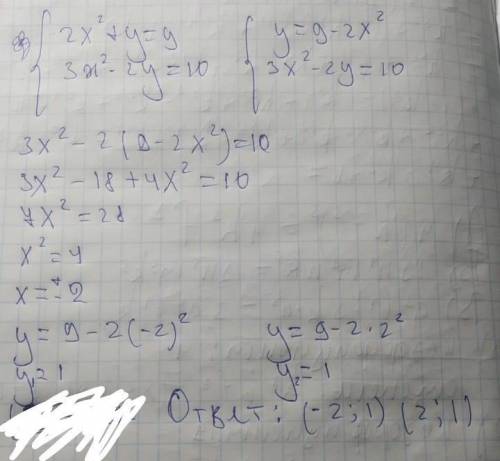 8) { 2x² + y = 9 { y = 9 - 2x²
3x² - 2y = 10 3x² - 2y = 10
3x² - 2(9 - 2x²) = 10
3x² - 18 + 4x² = 10
7x² = 28
x² = 4
x = ±2
y = 9 - 2(-2)² y = 9 - 2·2²
y₁ = 1 y₂ = 1
Ответ: (-2; 1) (2; 1)